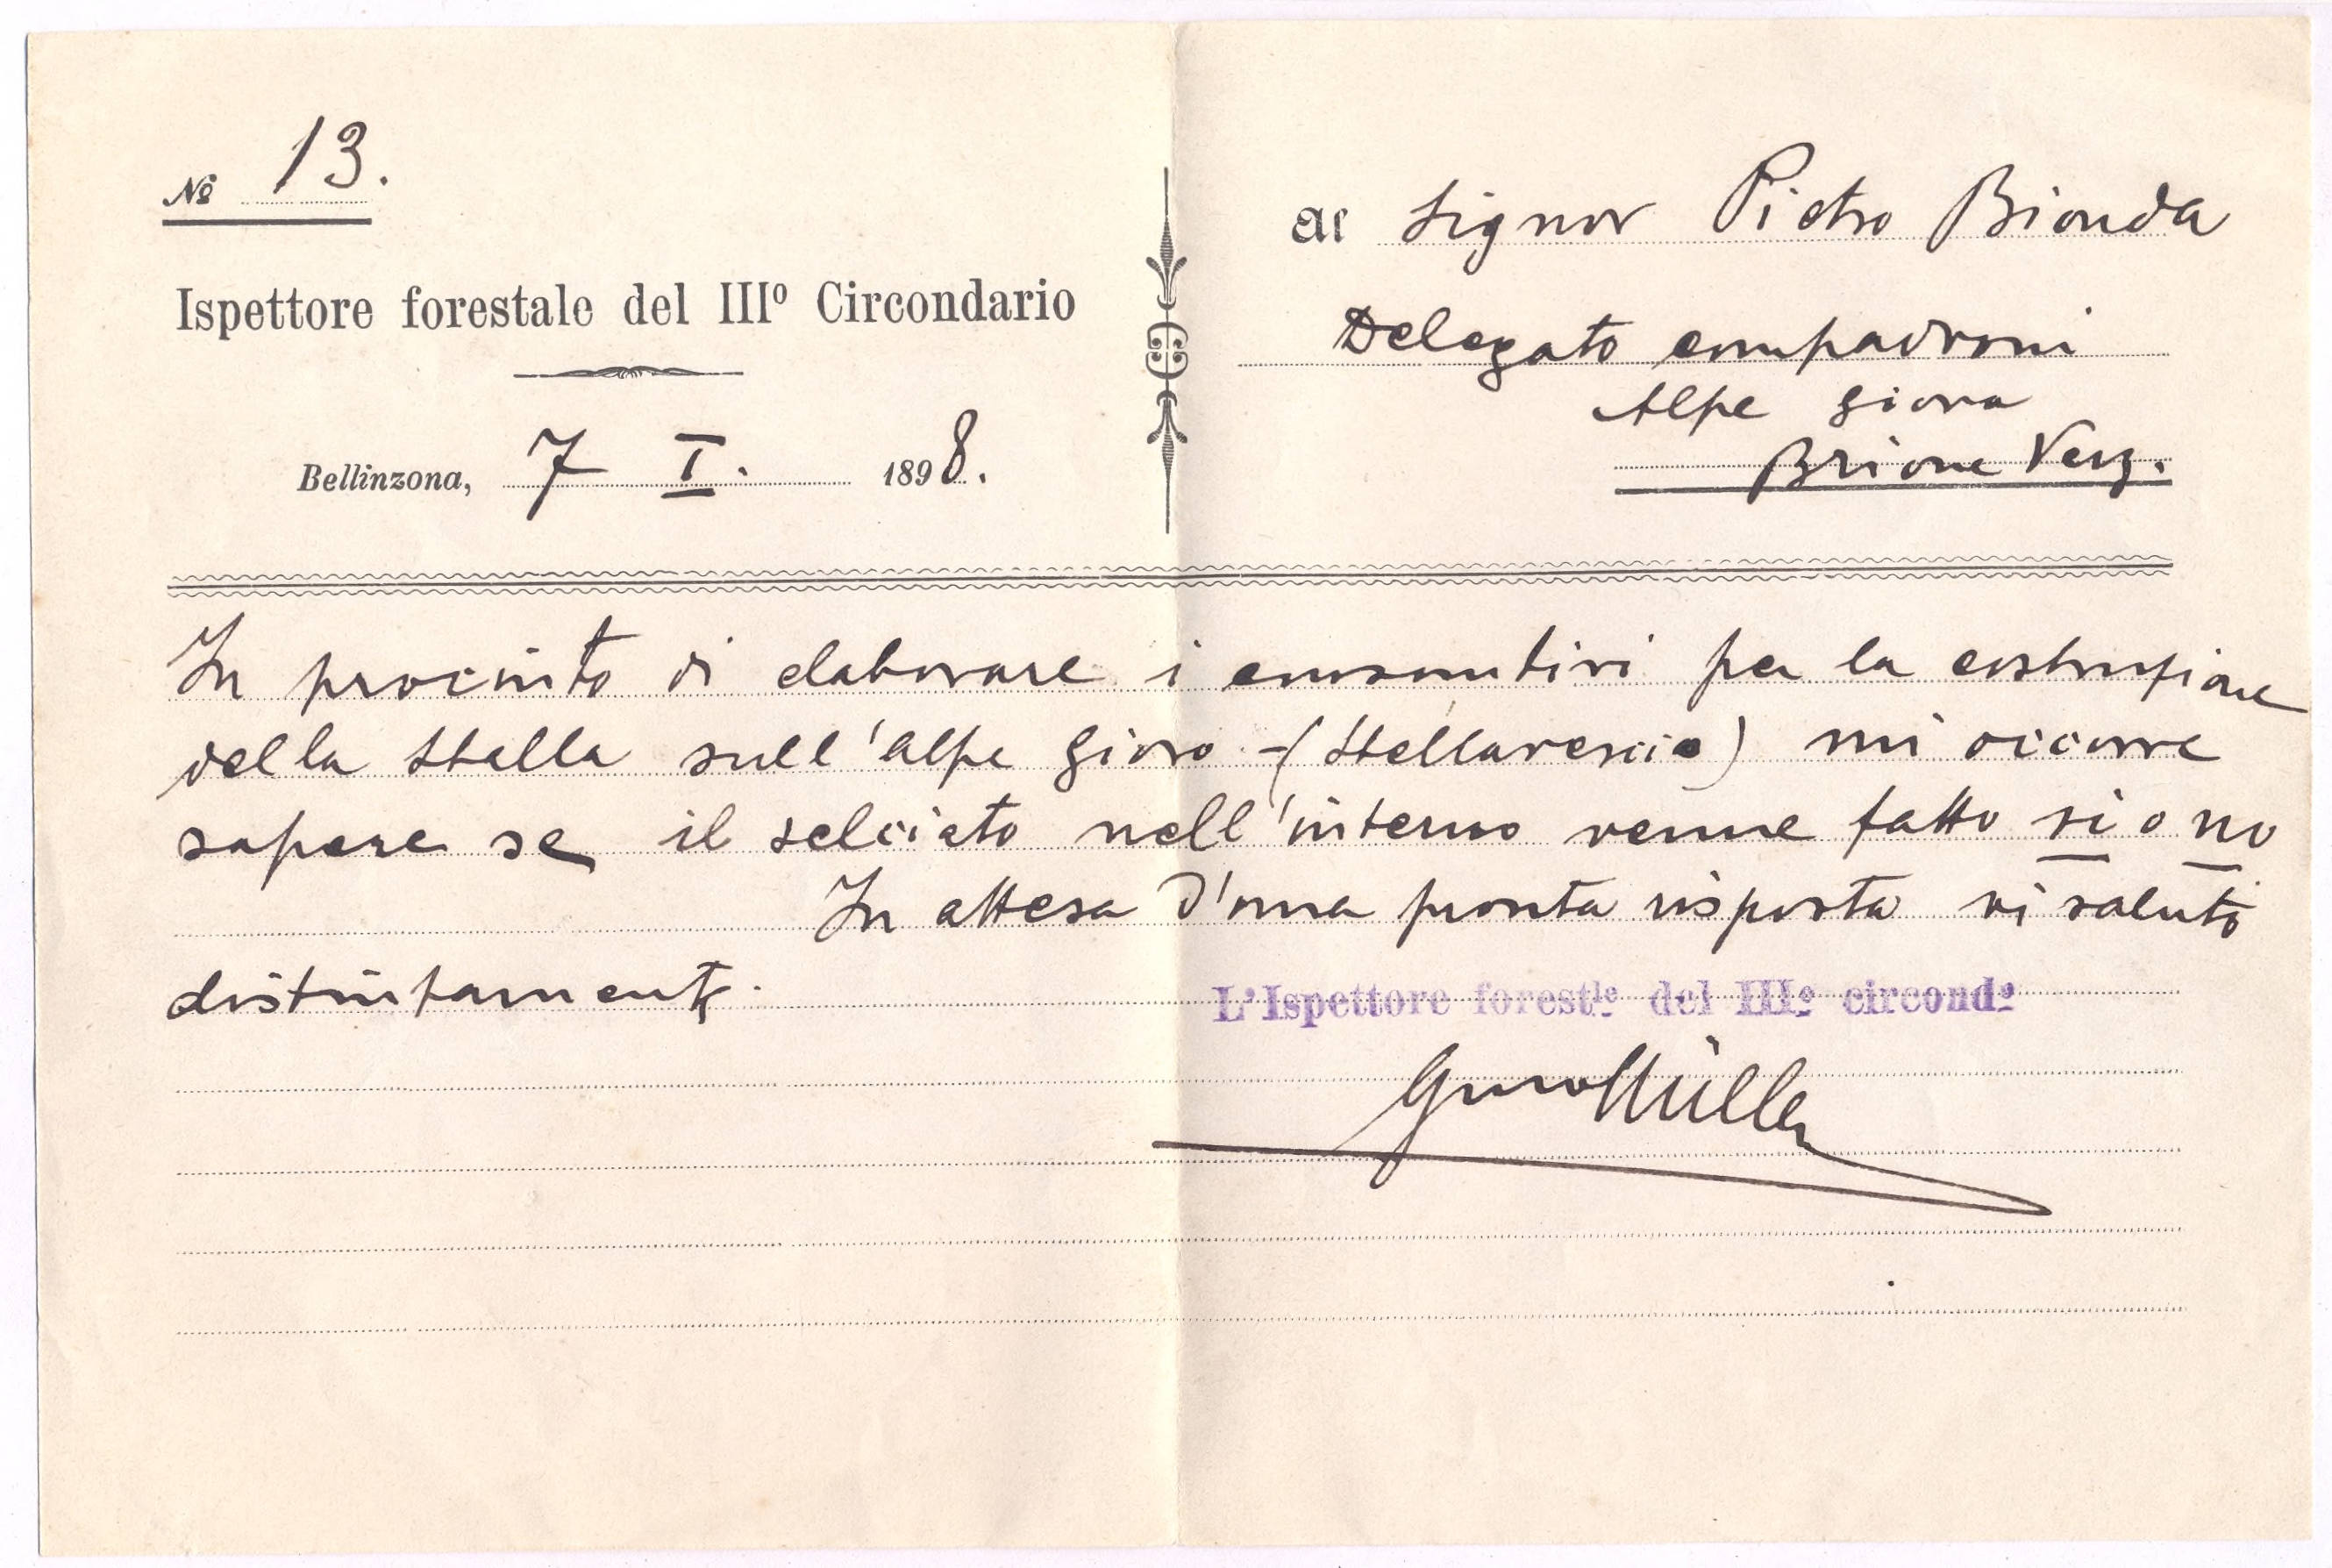 No 13.
Ispettore forestale del IIIo Circondario
Bellinzona, 7 I. 1898.
al Signor Pietro Bionda
Delegato compadroni
Alpe Giova
Brione Verz.
In procinto di elaborare i consuntivi per la costruzione
della Stalla sull'alpe Giovo - (Stellarescio) mi occorre
sapere se il selciato nell'interno venne fatto si o no
In attesa d'una pronta risposta vi saluto
distintamente.
L'Ispettore forestle del IIIo circondo
Müller